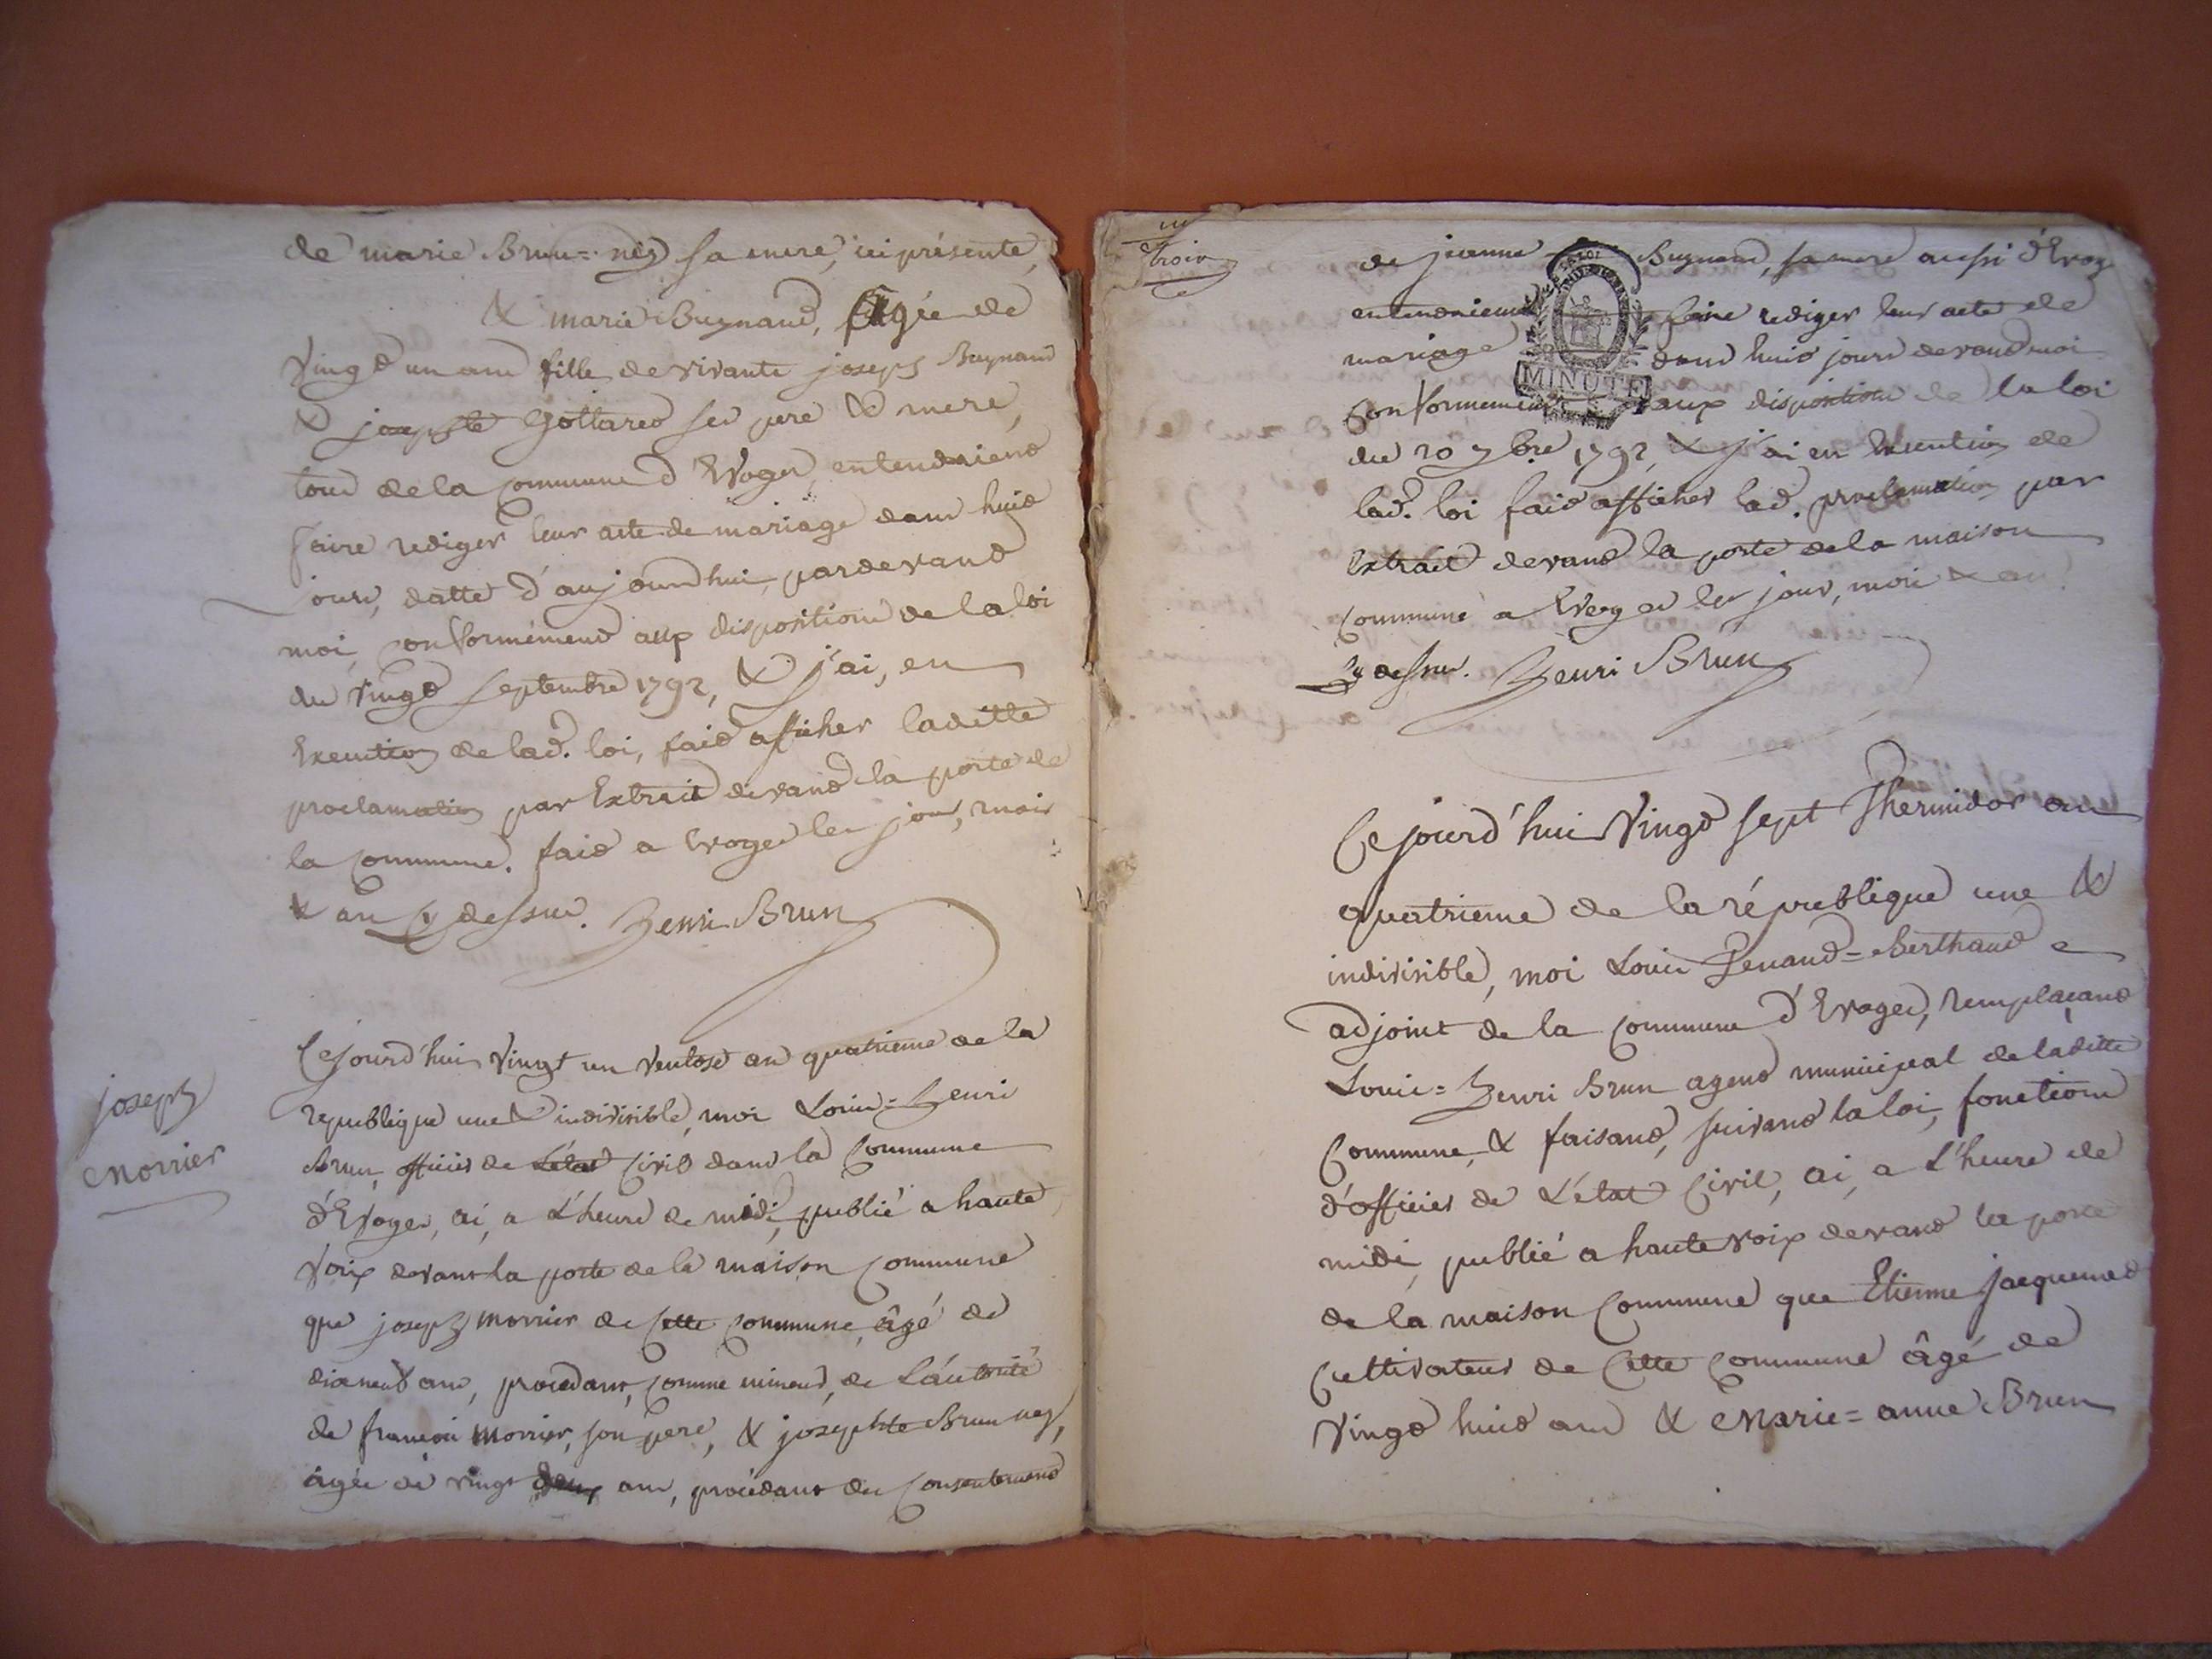 de marie Brun=ney sa mere, ici présente,
& marie Buynand, âgée de
Vingt un ans fille de vivants joseph Buynand
& josephte Gottared ses pere & mere,
tous de la Commune d'Evoges, entendaient
faire rediger leur acte de mariage dans huit
jours, datte d'aujourdhui, pardevant
moi, conformément aux dispositions de la loi
du vingt septembre 1792, & j'ai, en
Execution de lad. loi, fait afficher laditte
proclamation par Extrait devant la porte de
la Commune. fait a Evoges les jour, mois
& an Cy dessus. Henri Brun
joseph
Morrier
Cejourd'hui vingt un ventose an quatrieme de la
republique une & indivisible, moi Louis=Henri
Brun, officier de L'état Civil dans la Commune
d'Evoges, ai, a L'heure de midi, publié a haute
Voix devant la porte de la maison Commune
que joseph morrier de Cette Commune, âgé de
dixneuf ans, procedant, comme mineur, de L'autorité
de francois morrier, son pere, & josephte Brun ney,
âgée de vingt deux ans, procédant du Consentement
trois
de jeanne Buynand, sa mere aussi d'Evoges
entendaient faire rediger leur acte de
mariage dans huit jours devant moi
Conformement aux dispositions de la loi
du 20 7bre 1792, & j'ai en Execution de
lad. loi fait afficher lad. proclamation par
Extrait devant la porte de la maison
Commune a Evoges les jour, mois & an
Cy dessus. Henri Brun
MINUTE
Cejourd'hui Vingt sept Thermidor an
quatrieme de la république une &
indivisible, moi Louis Penand=Berthaud
adjoint de la Commune d'Evoges, remplaçant
Louis=Henri Brun agent municipal de laditte
Commune, & faisant, suivant la loi, fonctions
d'officier de L'état Civil, ai, a L'heure de
midi, publié a haute voix devant la porte
de la maison Commune que Etienne Jacquemet
Cultivateur de Cette Commune âgé de
Vingt huit ans & Marie=anne Brun